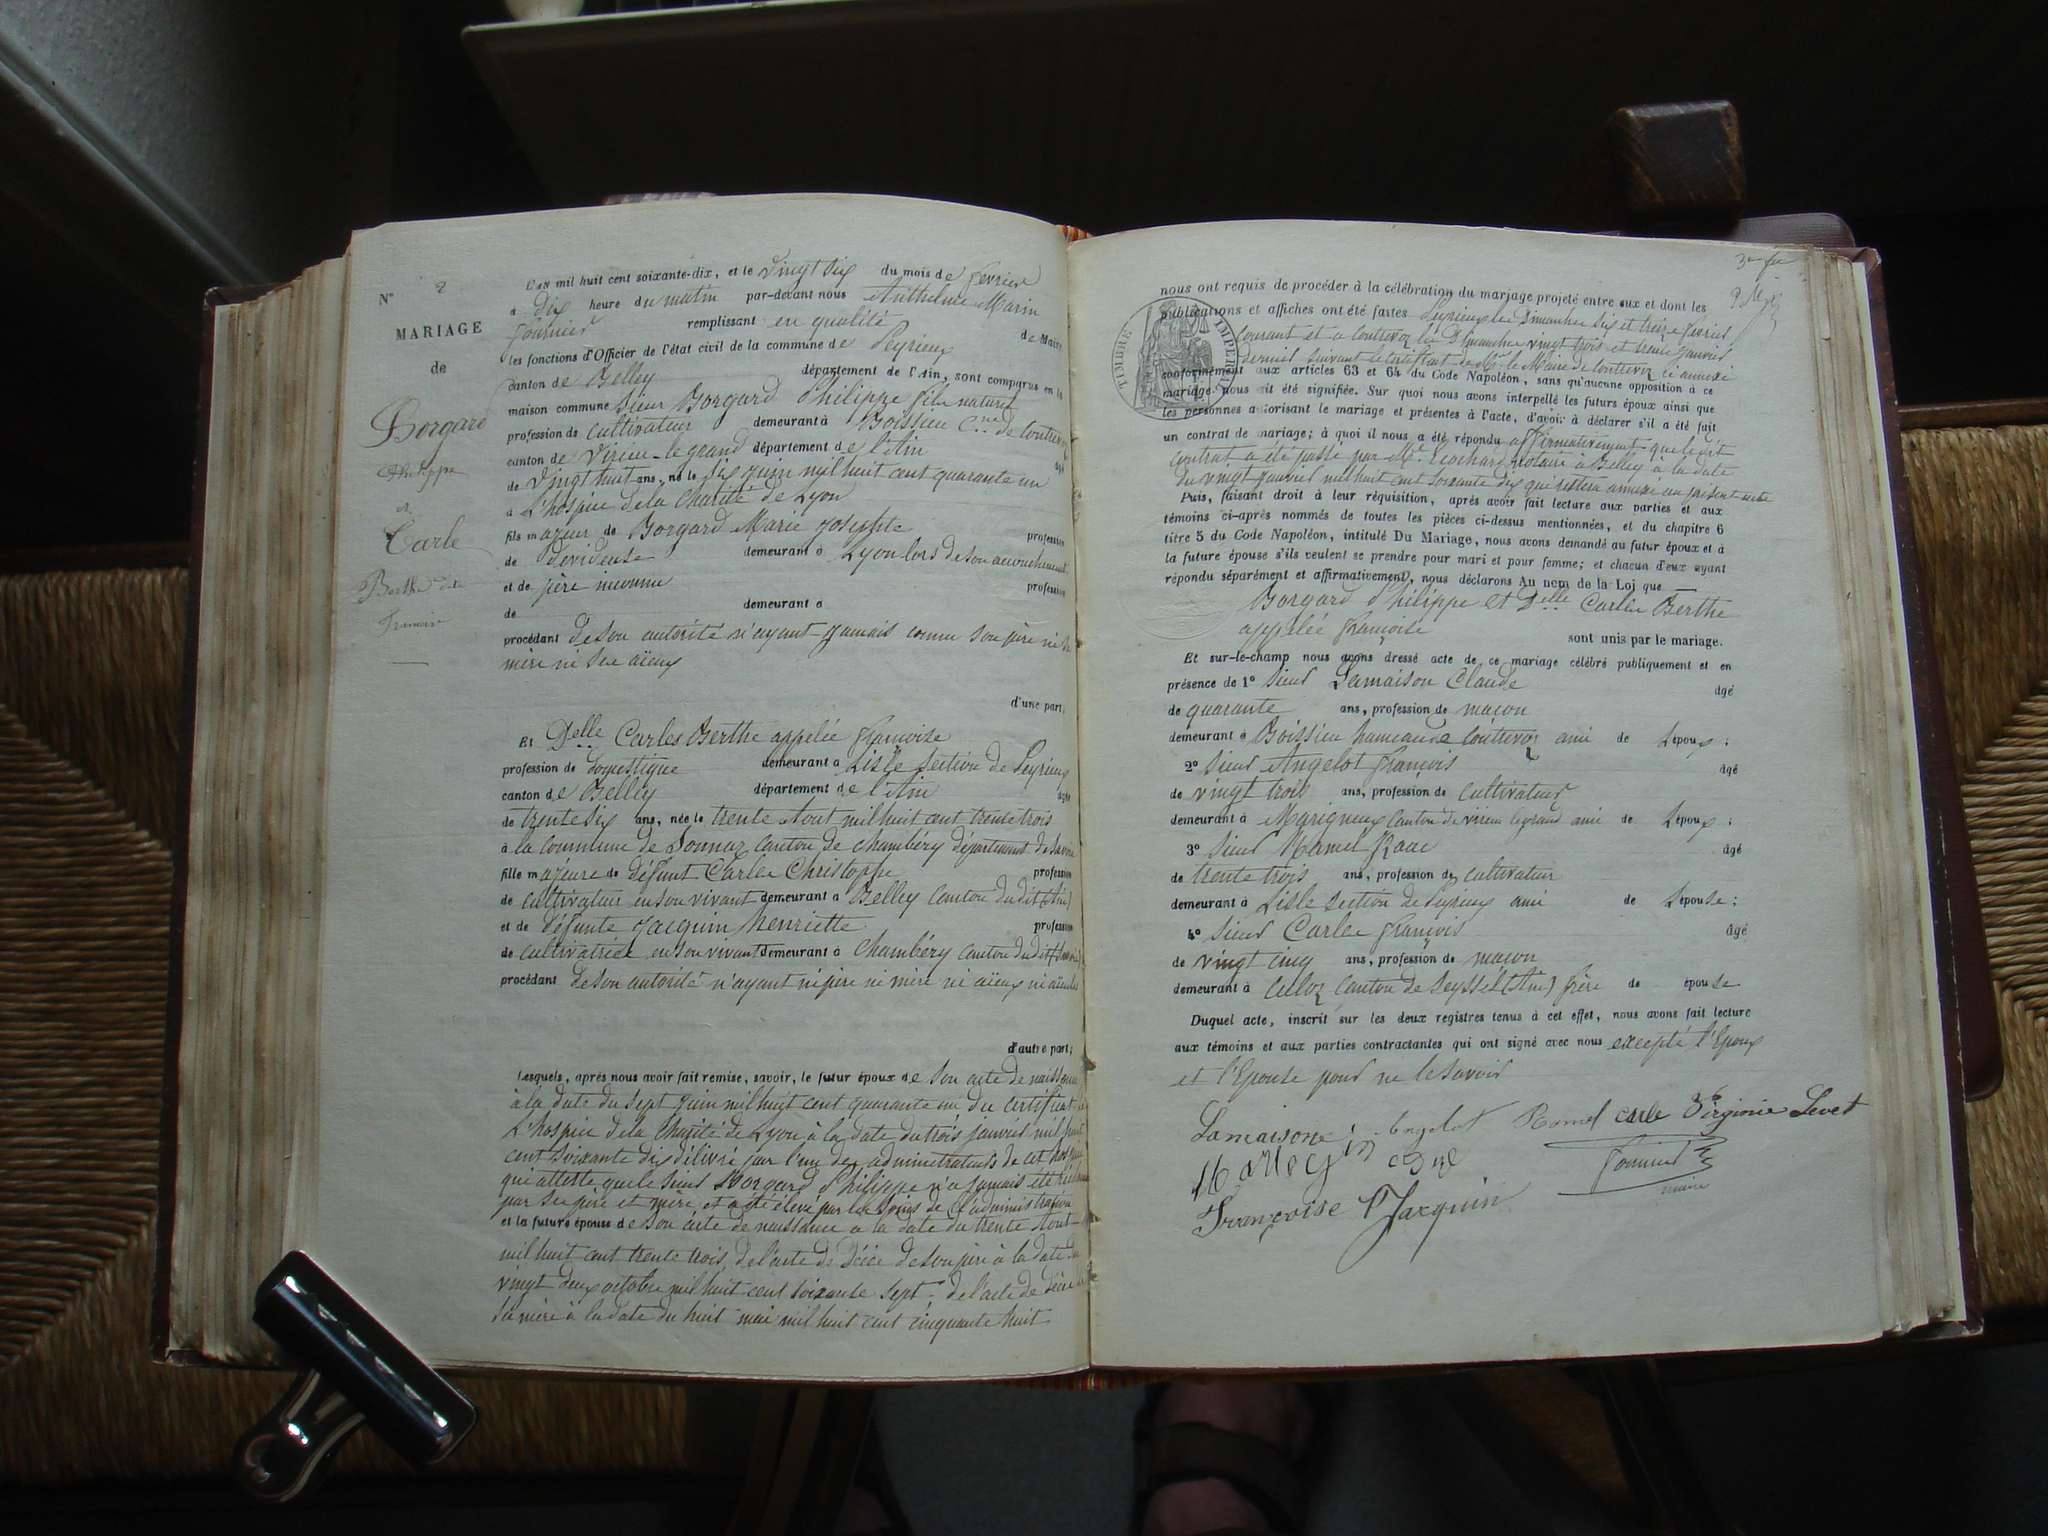 N° 2
MARIAGE
de
Borgard
Philippe
et
Carle
Berthe dite
L'an mil huit cent soixante-dix, et le vingt six du mois de février
à dix heure du matin par-devant nous Anthelme Marin
Fournier remplissant en qualité de Maire
les fonctions d'Officier de l'état civil de la commune de Peyrieux
canton de Belley département de l'Ain, sont comparus en la
maison commune Sieur Borgard Philippe fils naturel
profession de cultivateur demeurant à Boissieu Cne de Contrevoz
canton de Virieu-le-grand département de l'Ain âgé
de vingt huit ans, né le six juin mil huit cent quarante un
à l'hospice de la Charité de Lyon
fils majeur de Borgard Marie Josephte profession
de dévideuse demeurant à Lyon lors de son accouchement
et de père inconnu profession
de demeurant à
procédant de son autorité n'ayant jamais connu son père ni sa
mère ni ses aïeux
d'une part;
Et Delle Carles Berthe appelée Françoise
profession de domestique demeurant à Lisle section de Peyrieux
canton de Belley département de l'Ain âgée
de trente six ans, née le trente Aout mil huit cent trente trois
à la commune de Sonnaz canton de Chambéry département de Savoie
fille majeure de défunt Carle Christophe profession
de cultivateur en son vivant demeurant à Belley canton dudit (Ain)
et de défunte Jacquin Henriette profession
de cultivatrice en son vivant demeurant à Chambéry canton dudit (Savoie)
procédant de son autorité n'ayant ni père ni mère ni aïeux ni aïeules
d'autre part;
Lesquels, après nous avoir fait remise, savoir, le futur époux de son acte de naissance
à la date du sept juin mil huit cent quarante un du certificat de
l'hospice de la Charité de Lyon à la date du trois janvier mil huit
cent soixante dix délivré par l'un des administrateurs de cet hospice
qui atteste que le sieur Borgard Philippe n'a jamais été réclamé
par ses père et mère, et a été élevé par les soins de l'administration
et la future épouse de son acte de naissance à la date du trente Aout
mil huit cent trente trois, de l'acte de décès de son père à la date du
vingt deux octobre mil huit cent soixante sept - de l'acte de décès de
sa mère à la date du huit mai mil huit cent cinquante huit
nous ont requis de procéder à la célébration du mariage projeté entre eux et dont les
publications et affiches ont été faites Peyrieux les Dimanches six et treize février
courant et à Contrevoz les Dimanches vingt trois et trente janvier
dernier suivant le certificat de Mr le Maire de Contrevoz ci annexé
TIMBRE IMPERIAL
conformément aux articles 63 et 64 du Code Napoléon, sans qu'aucune opposition à ce
mariage nous ait été signifiée. Sur quoi nous avons interpellé les futurs époux ainsi que
les personnes autorisant le mariage et présentes à l'acte, d'avoir à déclarer s'il a été fait
un contrat de mariage; à quoi il nous a été répondu affirmativement que le dit
contrat a été passé par Me notaire à Belley à la date
du vingt janvier mil huit cent soixante dix qui restera annexé au présent acte
Puis, faisant droit à leur réquisition, après avoir fait lecture aux parties et aux
témoins ci-après nommés de toutes les pièces ci-dessus mentionnées, et du chapitre 6
titre 5 du Code Napoléon, intitulé Du Mariage, nous avons demandé au futur époux et à
la future épouse s'ils veulent se prendre pour mari et pour femme; et chacun d'eux ayant
répondu séparément et affirmativement, nous déclarons Au nom de la Loi que
Borgard Philippe et Delle Carles Berthe
appelée Françoise
sont unis par le mariage.
Et sur-le-champ nous avons dressé acte de ce mariage célébré publiquement et en
présence de 1° Sieur Lamaison Claude âgé
de quarante ans, profession de maçon
demeurant à Boissieu hameau de Contrevoz ami de l'époux;
2° Sieur Angelot François âgé
de vingt trois ans, profession de cultivateur
demeurant à Marignieux canton de virieu legrand ami de l'époux;
3° Sieur Mamel âgé
de trente trois ans, profession de cultivateur
demeurant à Lisle section de Peyrieux ami de l'épouse;
4° Sieur Carle François âgé
de vingt cinq ans, profession de maçon
demeurant à Culoz canton de Seyssel (Ain) frère de épouse
Duquel acte, inscrit sur les deux registres tenus à cet effet, nous avons fait lecture
aux témoins et aux parties contractantes qui ont signé avec nous excepté l'époux
et l'épouse pour ne le savoir
Lamaison Angelot carle Virginie Levet
Fournier
maire
Françoise Jacquin